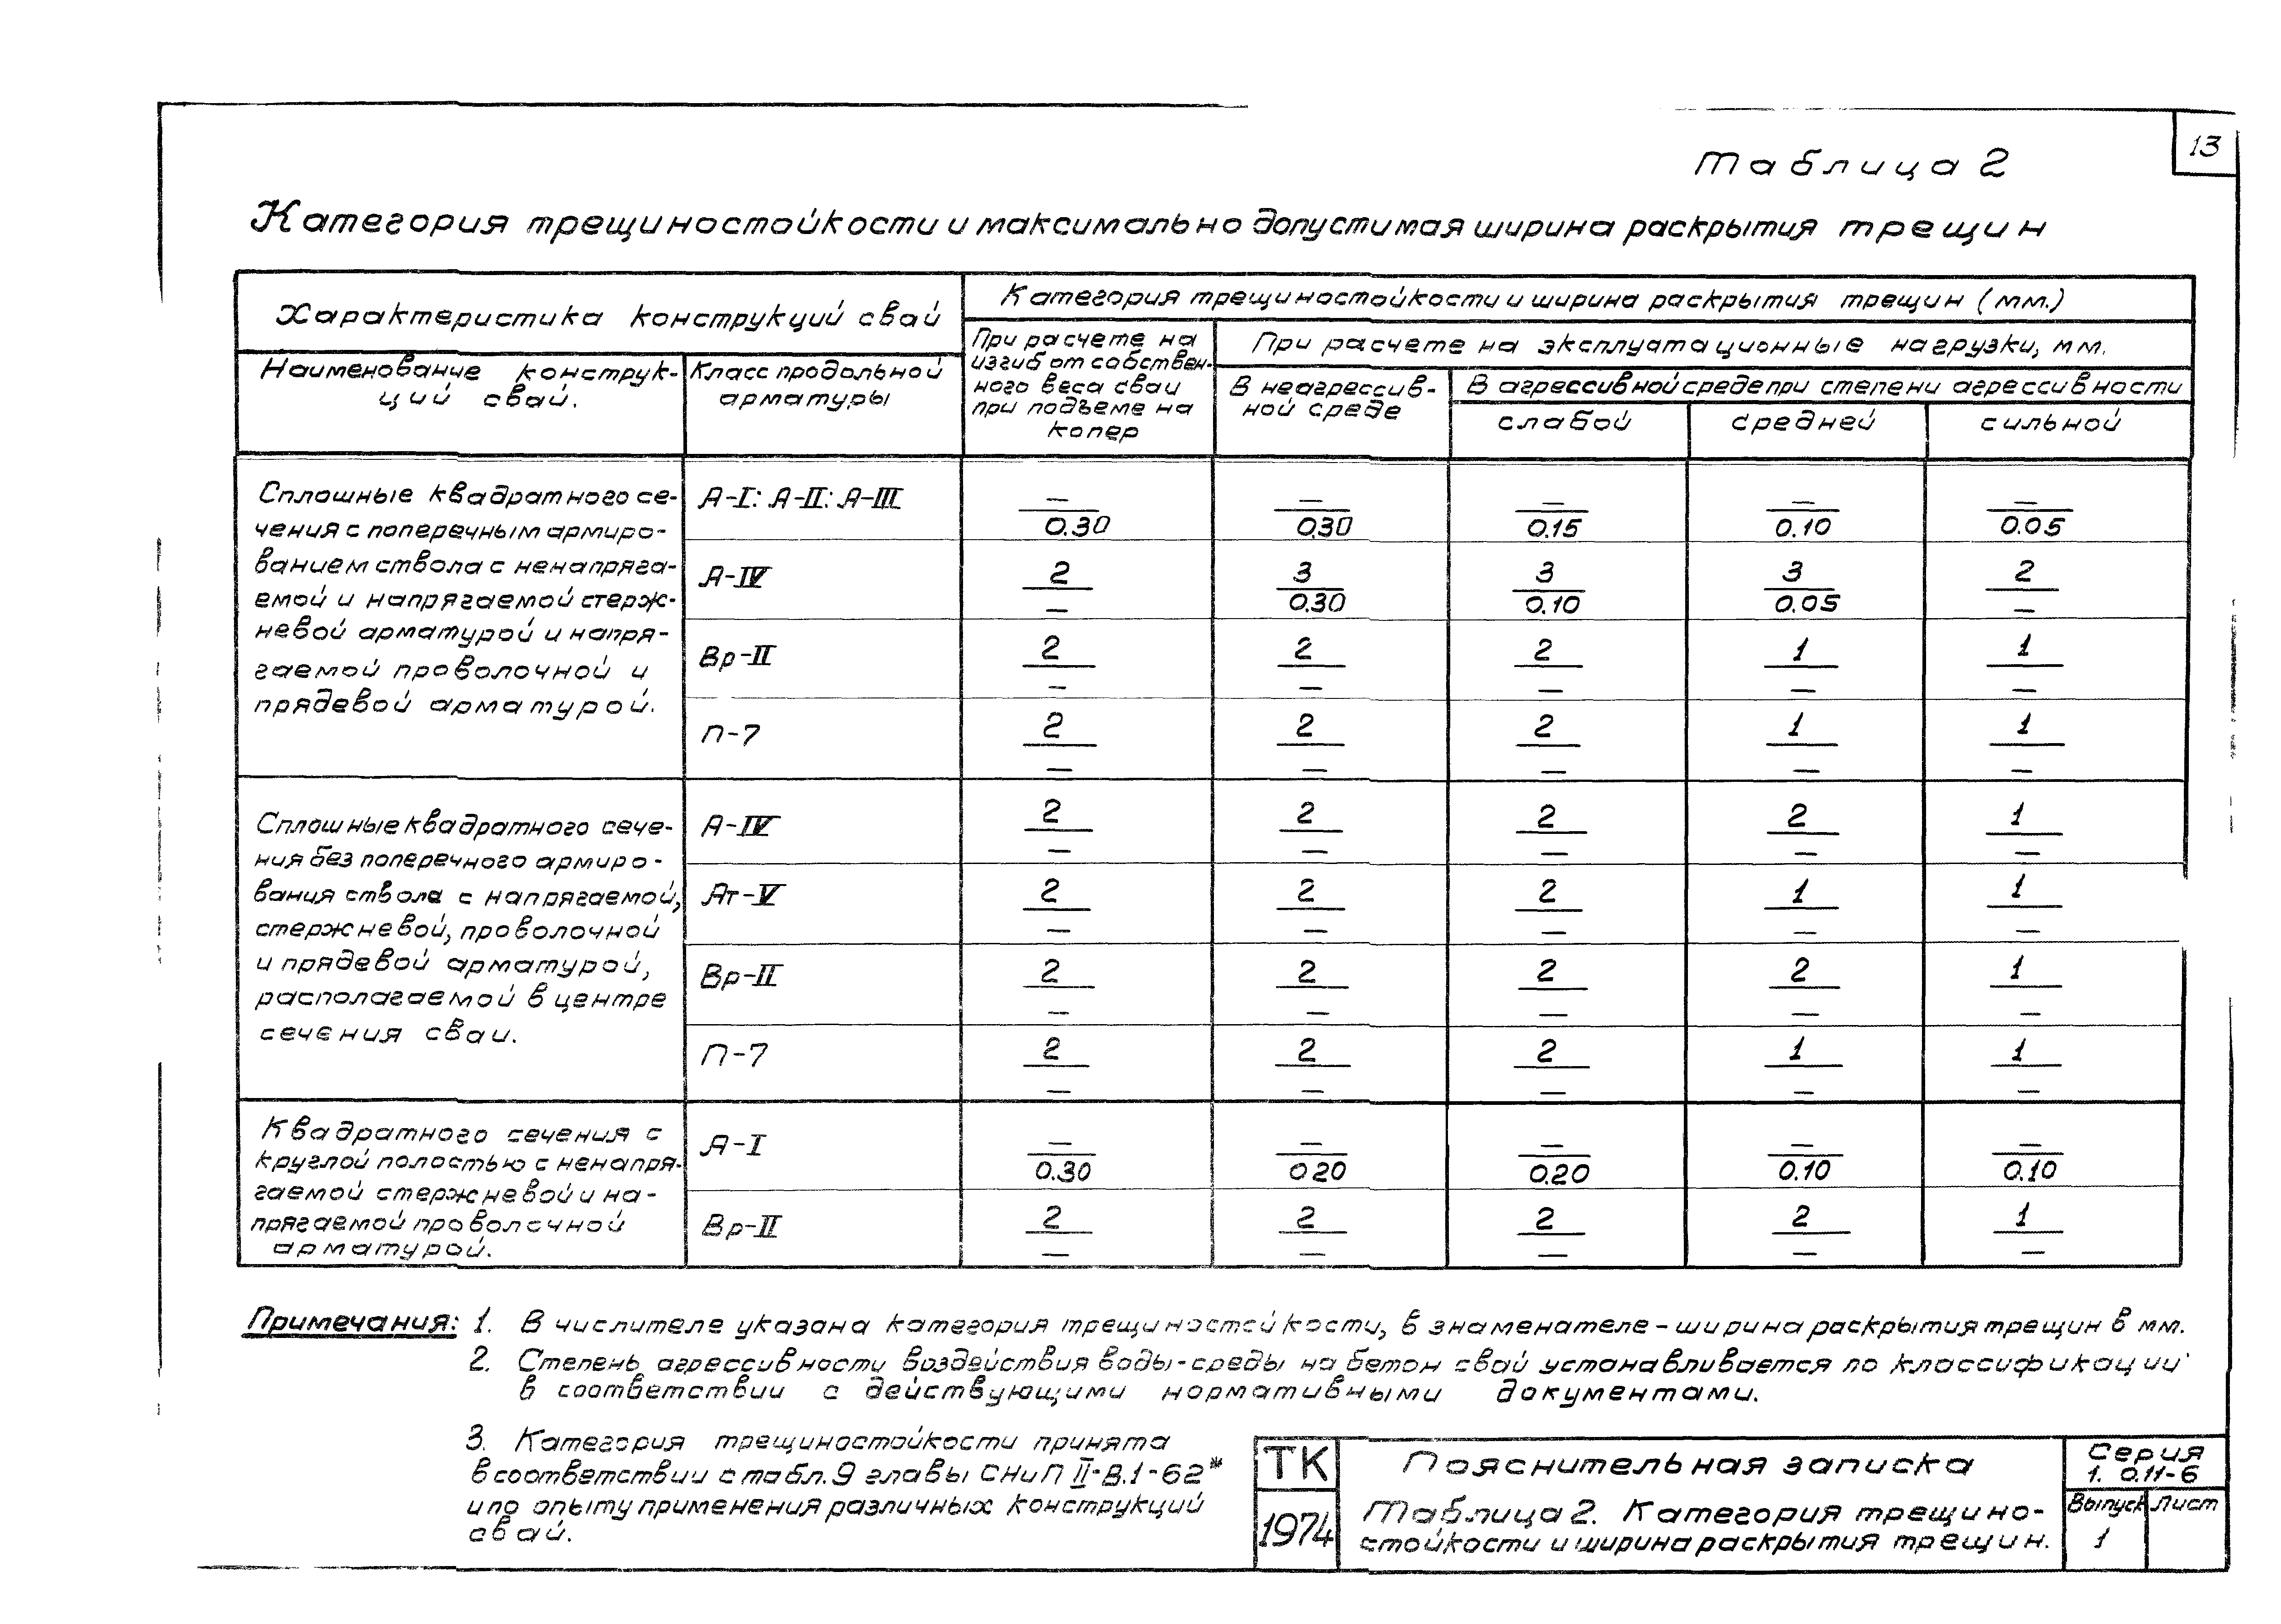 13
Таблица 2
Категория трещиностойкости и максимально допустимая ширина раскрытия трещин
Характеристика конструкций свай
Категория трещиностойкости и ширина раскрытия трещин (мм.)
Наименование конструк-
ций свай.
Класс продольной
арматуры
При расчете на
изгиб от собствен-
ного веса сваи
при подъеме на
копер
При расчете на эксплуатационные нагрузки, мм.
В неагрессив-
ной среде
В агрессивной среде при степени агрессивности
слабой
средней
сильной
Сплошные квадратного се-
чения с поперечным армиро-
ванием ствола с ненапряга-
емой и напрягаемой стерж-
невой арматурой и напря-
гаемой проволочной и
прядевой арматурой.
А-I: А-II: А-III
— — — — —
0.30 0.30 0.15 0.10 0.05
А-IV
2 3 3 3 2
— 0.30 0.10 0.05 —
Вр-II
2 2 2 1 1
— — — — —
П-7
2 2 2 1 1
— — — — —
Сплошные квадратного сече-
ния без поперечного армиро-
вания ствола с напрягаемой,
стержневой, проволочной
и прядевой арматурой,
располагаемой в центре
сечения сваи.
А-IV
2 2 2 2 1
— — — — —
Ат-V
2 2 2 1 1
— — — — —
Вр-II
2 2 2 2 1
— — — — —
П-7
2 2 2 1 1
— — — — —
Квадратного сечения с
круглой полостью с ненапря-
гаемой стержневой и на-
прягаемой проволочной
арматурой.
А-I
— — — — —
0.30 0.20 0.20 0.10 0.10
Вр-II
2 2 2 2 1
— — — — —
Примечания: 1. В числителе указана категория трещиностойкости, в знаменателе - ширина раскрытия трещин в мм.
2. Степень агрессивности воздействия воды-среды на бетон свай устанавливается по классификации
в соответствии с действующими нормативными документами.
3. Категория трещиностойкости принята
в соответствии с табл. 9 главы СНиП II-В.1-62*
и по опыту применения различных конструкций
свай.
ТК
1974
Пояснительная записка
Таблица 2. Категория трещино-
стойкости и ширина раскрытия трещин.
Серия
1. 0.11-6
Выпуск Лист
1